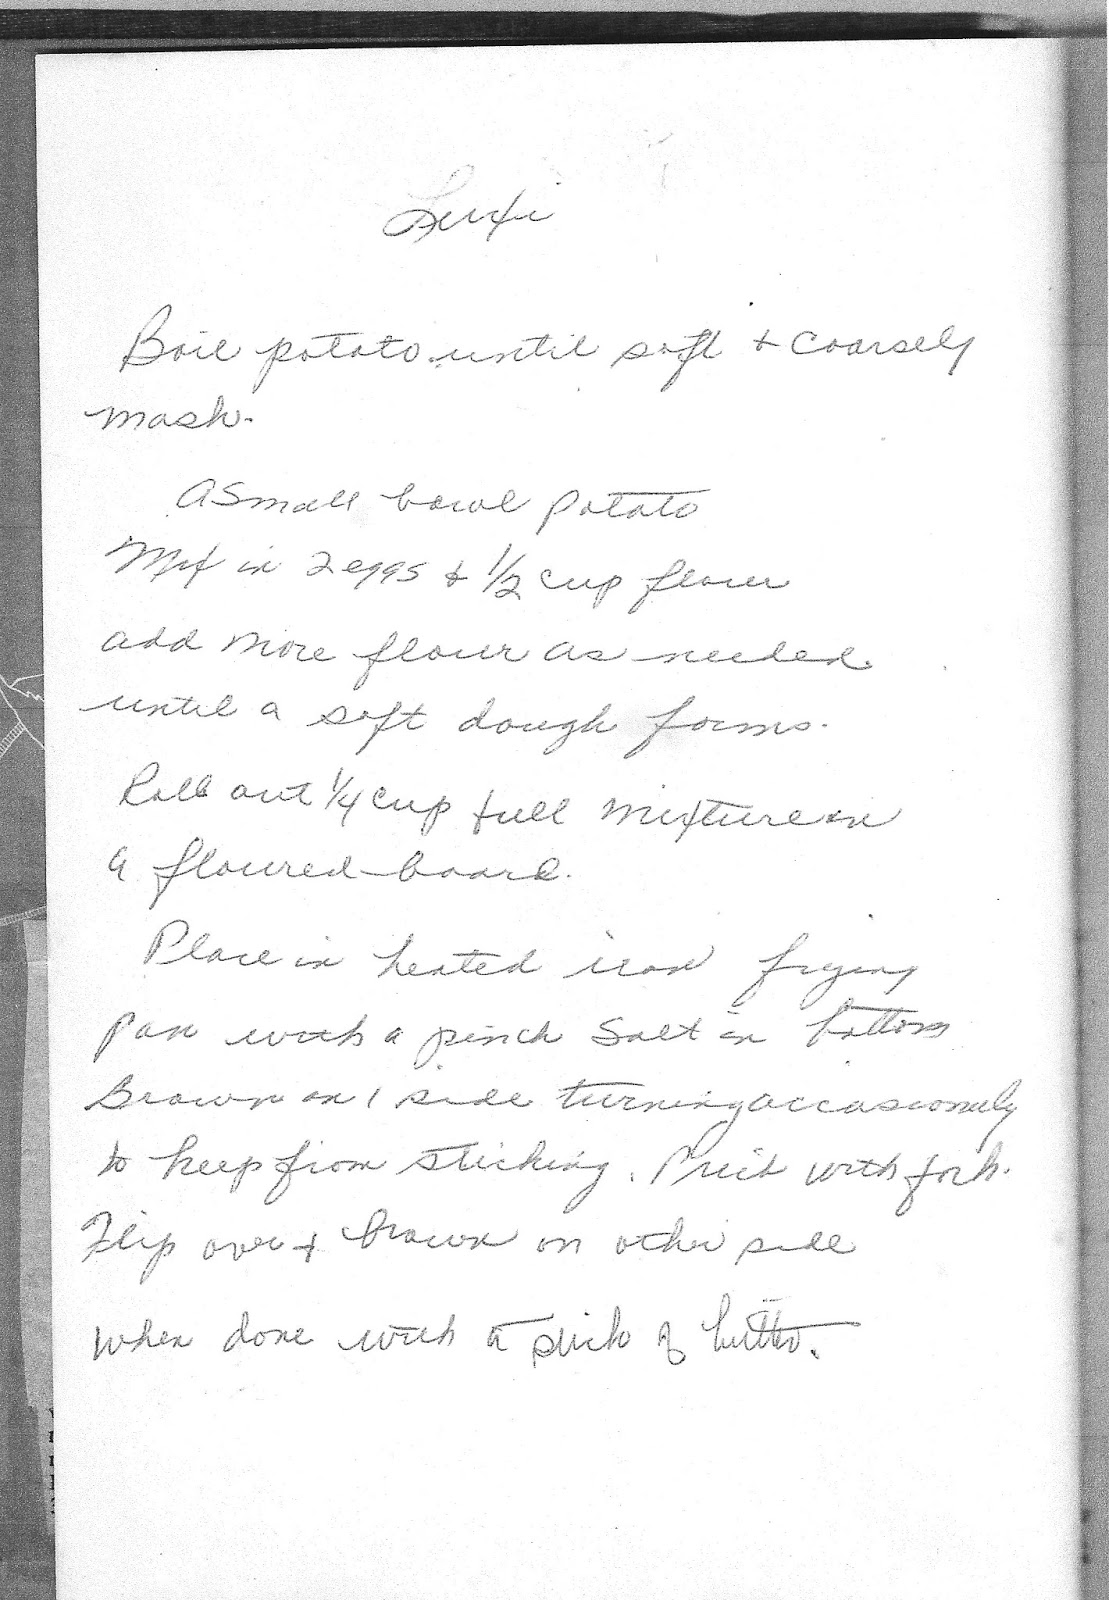 Boil potato until soft + coarsely
mash.
A small bowl potato
Mix in 2 eggs + 1/2 cup flour
add more flour as needed.
until a soft dough forms.
Roll out 1/4 cup full mixture on
a floured board.
Place in heated iron frying
pan with a pinch Salt in bottom
Brown on 1 side turning occasionaly
to keep from sticking. with fork.
Flip over + brown on other side
when done with a of butter.